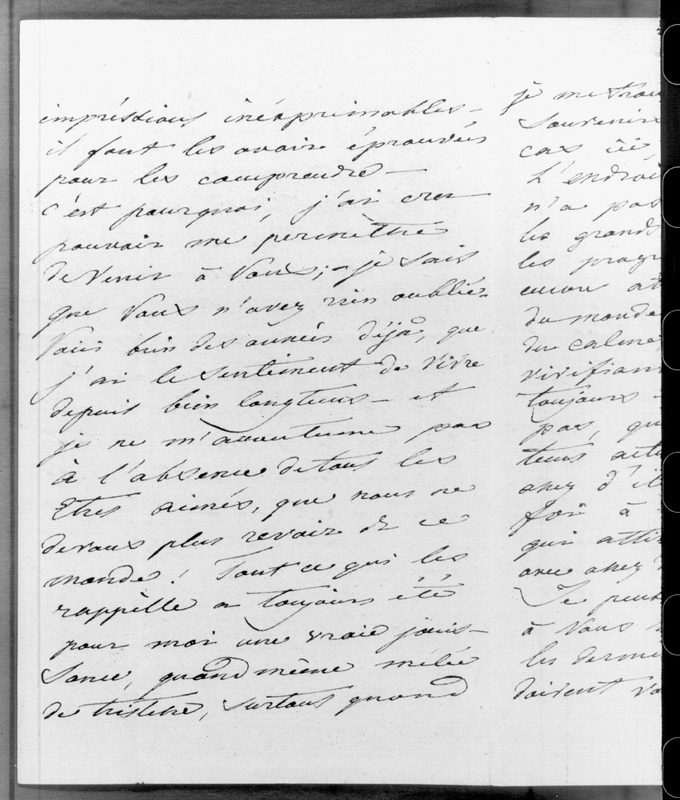 impréssions inéxprimables –
il faut les avoire éprouvés
pour les comprendre –
c'est pourquoi, j'ai cru
pouvoir me permettre
de venir à Vous; – je sais
que Vous n'avez rien oublié.
Voici bien des années déjà, que
j'ai le sentiment de vivre
depuis bien longtems – et
je ne m'accoutume pas
à l'absence de tous les
Etres aimés, que nous ne
devons plus revoir de ce
monde! Tout ce qui les
rappèlle a toujours été
pour moi une vraie jouis-
sance, quand même mêlée
de tristesse, surtout quand
je me trou
Souvenirs
cas
L'endroi
n'a pas
les grands
les progr
aucun at
du monde
du calme
vivifian
toujours
pas, qu
tems
avez d'
foi à
qui atti
avec
Je peux
à Vous
les derni
doivent Vo